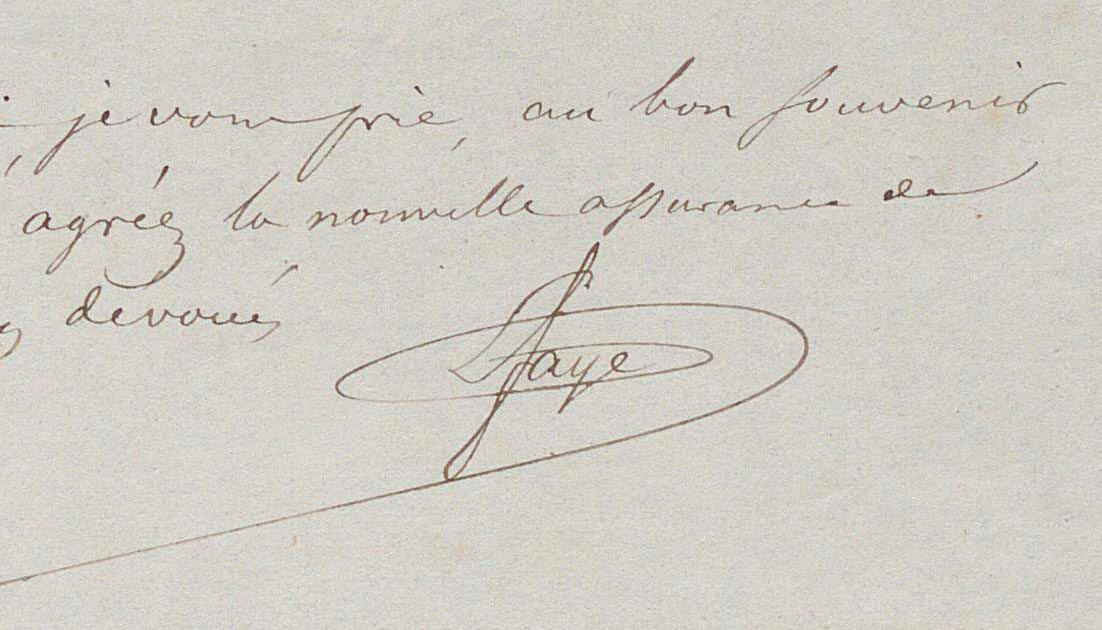 je vous prie, au bon souvenir
agréez la nouvelle assurance de
dévoués
Faye